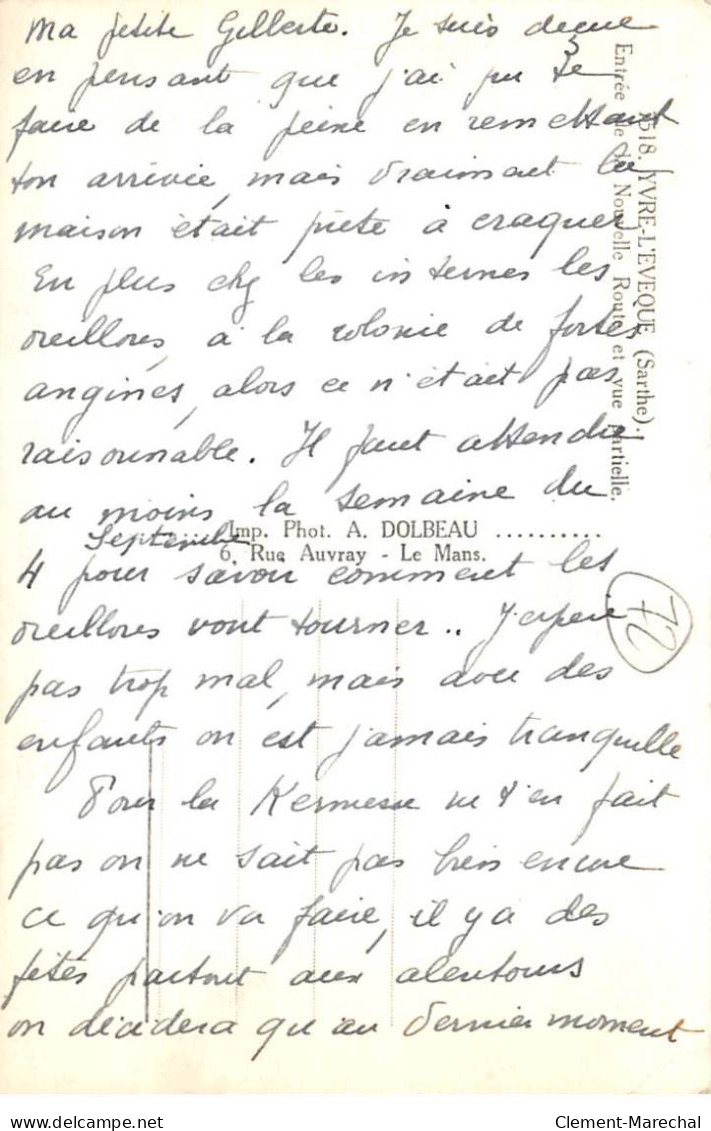 Ma petite Gilberte. Je suis deçue
en pensant que j'ai pu te
faire de la peine en remettant
ton arrivée, mais vraiment la
maison était prête à craquer
En plus chez les internes les
oreillons, à la colonie de fortes
angines, alors ce n'était pas
raisonnable. Il faut attendre
au moins la semaine du
Septembre
4 pour savoir comment les
oreillons vont tourner.. J'espère
pas trop mal, mais avec des
enfants on est jamais tranquille
Pour la Kermesse ne t'en fait
pas on ne sait pas bien encore
ce qu'on va faire, il y a des
fêtes partout aux alentours
on décidera qu'au dernier moment
518. YVRE-L'EVEQUE (Sarthe).
Entrée de la Nouvelle Route et vue partielle.
Imp. Phot. A. DOLBEAU ..........
6, Rue Auvray - Le Mans.
72
Clement-Marechal